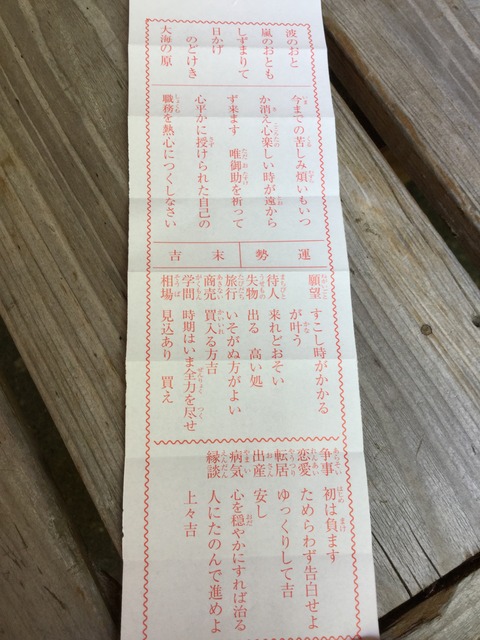 波のおと
嵐のおとも
しずまりて
日かげ
のどけき
大海の原
今までの苦しみ煩いもいつ
か消え心楽しい時が遠から
ず来ます　唯御助を祈って
心平かに授けられた自己の
職務を熱心につくしなさい
運勢　末吉
願望　すこし時がかかる
が叶う
待人　来れどおそい
失物　出る　高い処
旅行　いそがぬ方がよい
商売　買入る方吉
学問　時期はいま全力を尽せ
相場　見込あり　買え
争事　初は負ます
恋愛　ためらわず告白せよ
転居　ゆっくりして吉
出産　安し
病気　心を穏やかにすれば治る
縁談　人にたのんで進めよ
上々吉